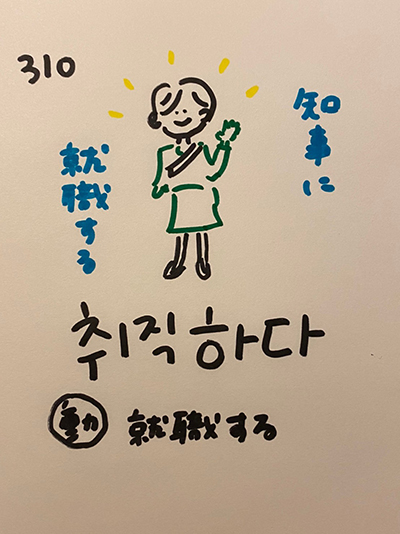 310
知事に
就職する
취직하다
動 就職する